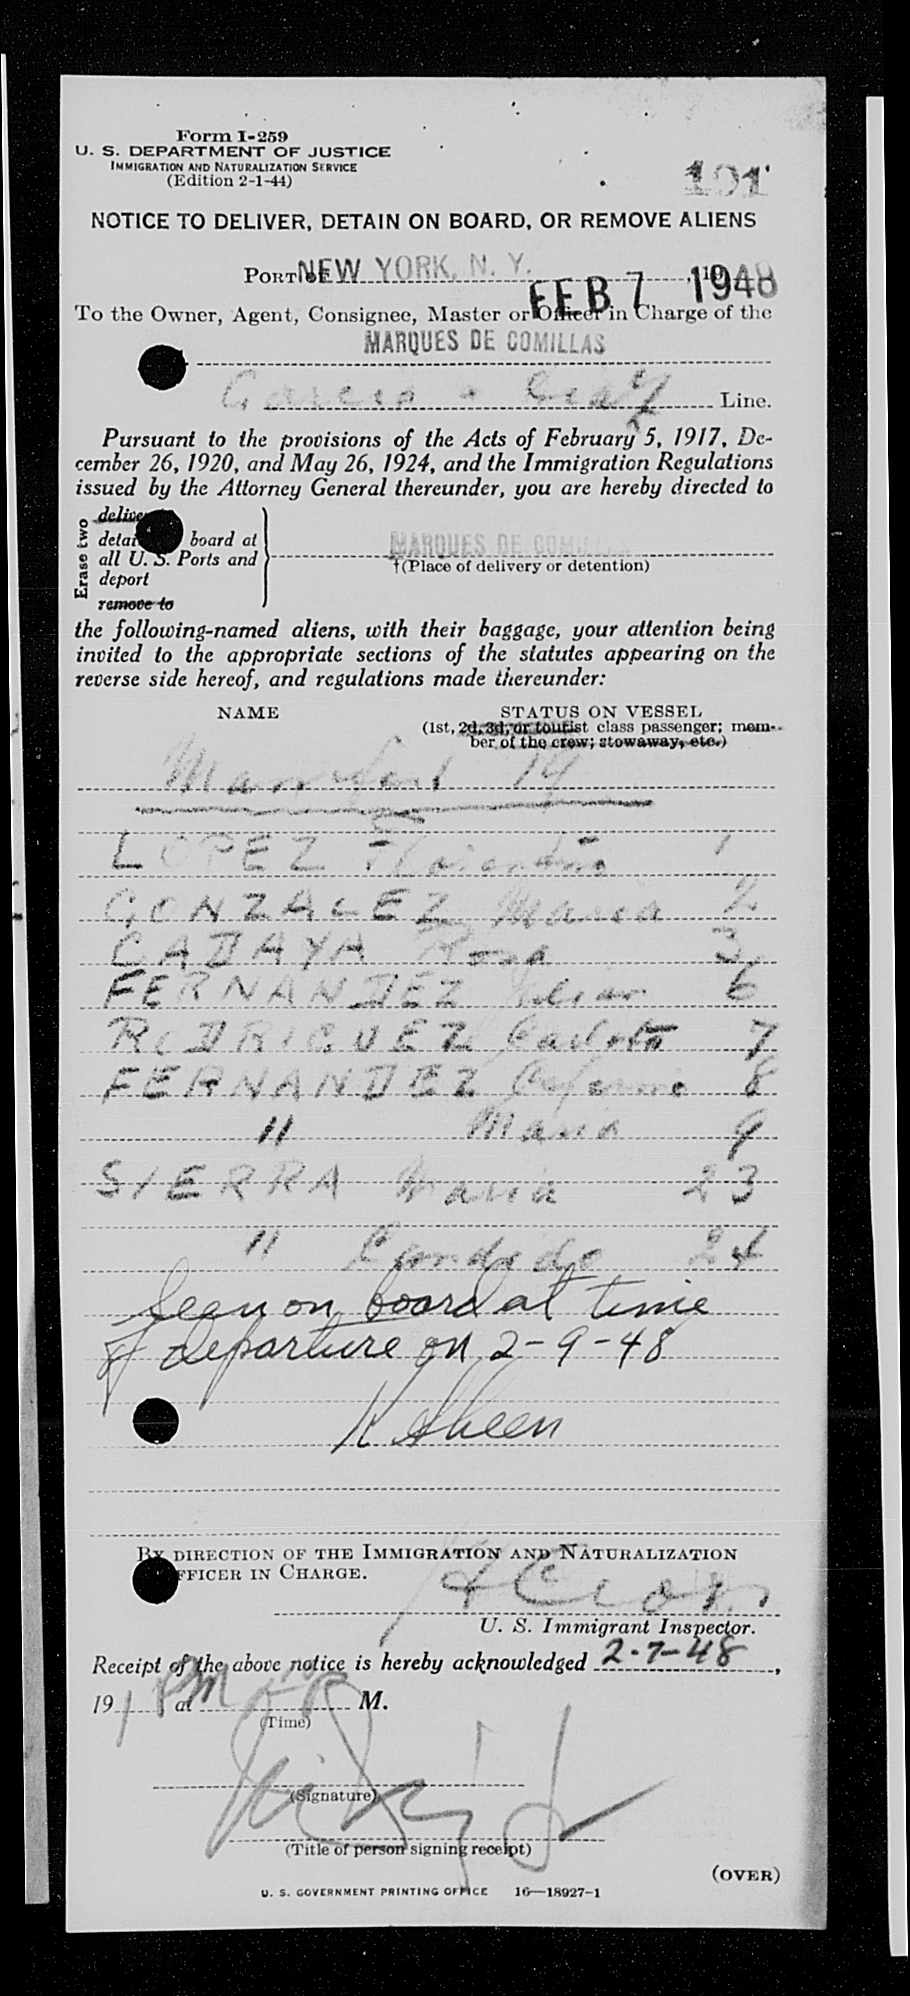 Form I-259
U. S. DEPARTMENT OF JUSTICE
IMMIGRATION AND NATURALIZATION SERVICE
(Edition 2-1-44)
191
NOTICE TO DELIVER, DETAIN ON BOARD, OR REMOVE ALIENS
PORT OF NEW YORK, N. Y.
FEB 7 1948
To the Owner, Agent, Consignee, Master or Officer in Charge of the
MARQUES DE COMILLAS
Garcia & Diaz Line.
Pursuant to the provisions of the Acts of February 5, 1917, De-
cember 26, 1920, and May 26, 1924, and the Immigration Regulations
issued by the Attorney General thereunder, you are hereby directed to
Erase two
deliver
detain board at
all U. S. Ports and
deport
remove to
MARQUES DE COMILLAS
†(Place of delivery or detention)
the following-named aliens, with their baggage, your attention being
invited to the appropriate sections of the statutes appearing on the
reverse side hereof, and regulations made thereunder:
NAME STATUS ON VESSEL
(1st, 2d, 3d, or tourist class passenger; mem-
ber of the crew; stowaway, etc.)
Manifest 14
LOPEZ Florentina 1
GONZALEZ Maria 2
CADAYA Rosa 3
FERNANDEZ Julian 6
RODRIGUEZ Carlota 7
FERNANDEZ 8
" Maria 9
SIERRA Maria 23
" Candido 24
Seen on board at time
of departure on 2-9-48
BY DIRECTION OF THE IMMIGRATION AND NATURALIZATION
OFFICER IN CHARGE.
U. S. Immigrant Inspector.
Receipt of the above notice is hereby acknowledged 2-7-48,
19 at M.
(Time)
(Signature)
(Title of person signing receipt)
(OVER)
U. S. GOVERNMENT PRINTING OFFICE 16—18927-1